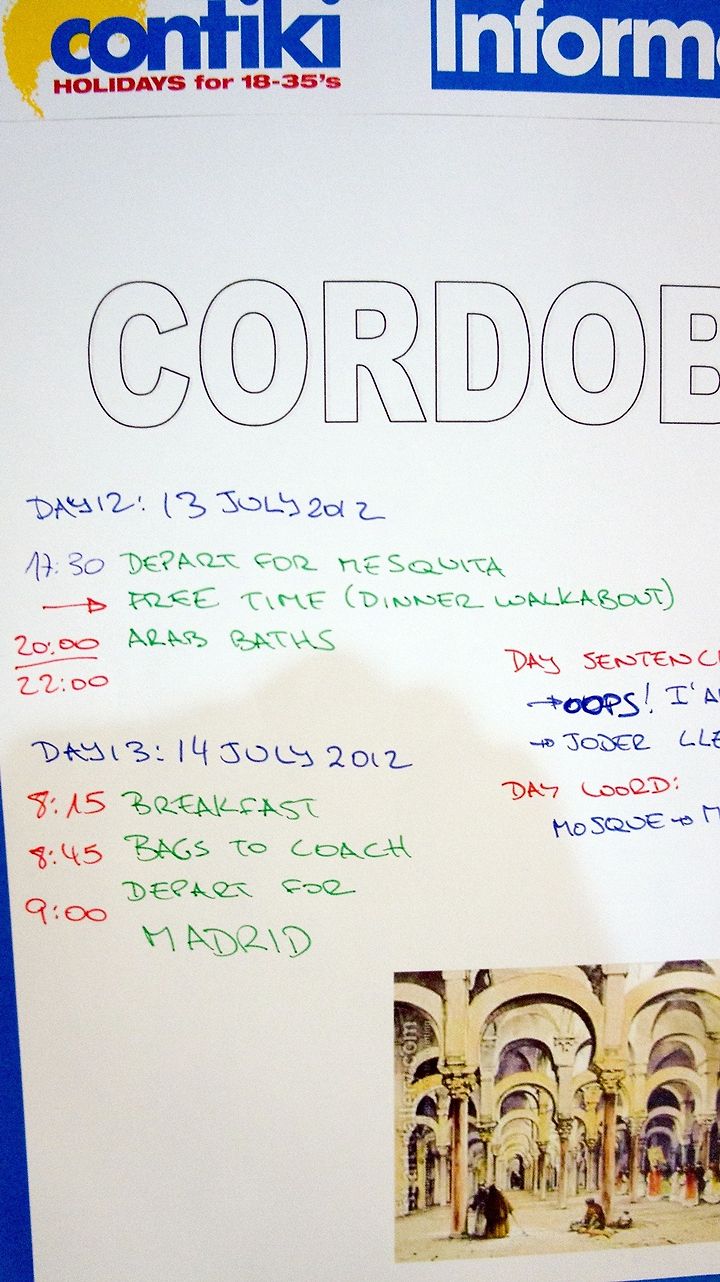 contiki
HOLIDAYS for 18-35's
Inform
CORDOB
DAY 12: 13 JULY 2012
17:30 DEPART FOR MESQUITA
→ FREE TIME (DINNER WALKABOUT)
20:00 ARAB BATHS
22:00
DAY SENTENC
→ OOPS! I'A
→ JODER LLE
DAY WORD:
MOSQUE → M
DAY 13: 14 JULY 2012
8:15 BREAKFAST
8:45 BAGS TO COACH
9:00 DEPART FOR
MADRID